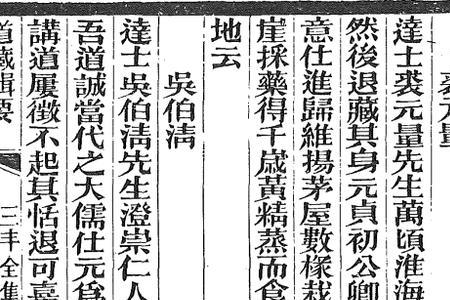 裘元量
達士裘元量先生萬頃淮海
然後退藏其身元貞初公卿
意仕進歸維揚茅屋數椽栽
崖採藥得千歲黃精蒸而食
地云
吳伯淸
達士吳伯淸先生澄崇仁人
吾道誠當代之大儒仕元爲
講道屢徵不起其恬退可嘉
道藏輯要
三丰全集